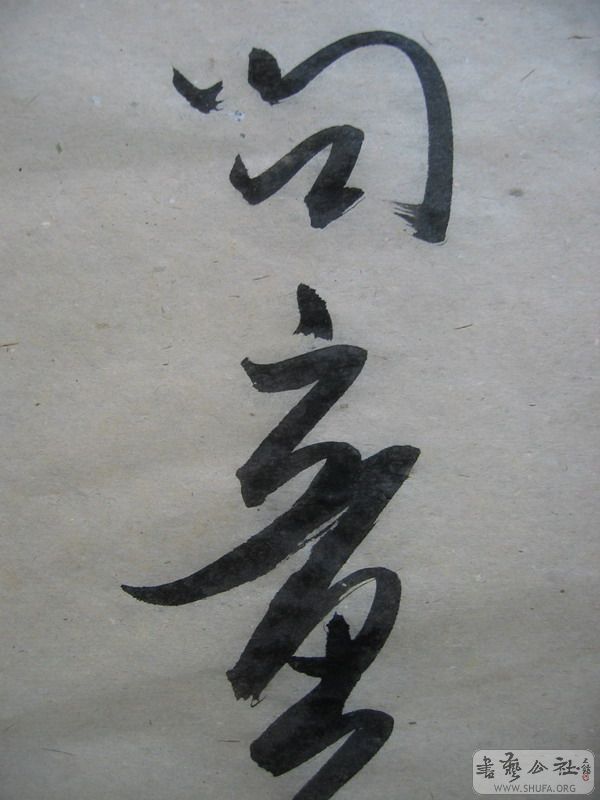 问童
書藝公社
WWW.SHUFA.ORG